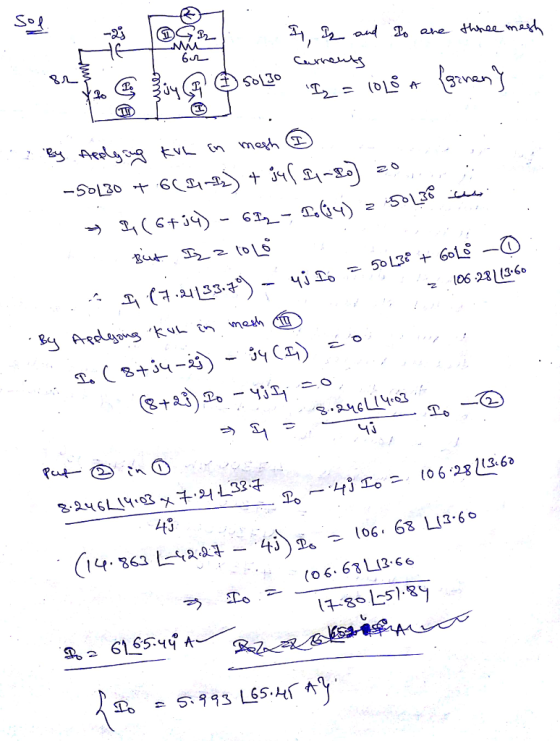 Sol
-2j
II
I2
6Ω
8Ω
I0
I0
j4
I1
50∠30
III
I
I1, I2 and I0 are three mesh
currents
I2 = 10∠0° A {given}
By Applying KVL in mesh I
-50∠30 + 6(I1-I2) + j4(I1-I0) = 0
⇒ I1(6+j4) - 6I2 - I0(j4) = 50∠30°
But I2 = 10∠0°
∴ I1(7.21∠33.7°) - 4j I0 = 50∠30° + 60∠0° — ①
= 106.28∠13.60
By Applying KVL in mesh III
I0(8+j4-2j) - j4(I1) = 0
(8+2j)I0 - 4jI1 = 0
⇒ I1 = 8.246∠14.03 / 4j I0 — ②
Put ② in ①
8.246∠14.03 × 7.21∠33.7 / 4j I0 - 4j I0 = 106.28∠13.60
(14.863∠-42.27 - 4j) I0 = 106.68∠13.60
⇒ I0 = 106.68∠13.60 / 17.80∠-51.84
I0 = 6∠65.44° A
{I0 = 5.993∠65.45 A}